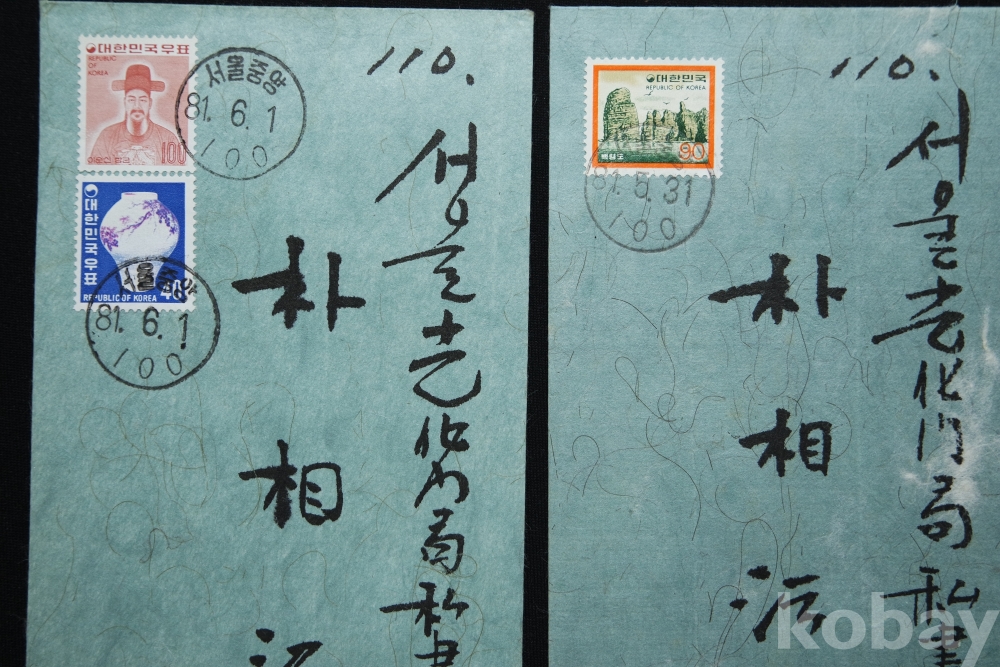 대한민국우표
REPUBLIC
OF
KOREA
100
서울중앙
81.6.1
100
대한민국우표
REPUBLIC OF KOREA
40
서울중앙
81.6.1
100
110.
서울光化門局私書
朴相
대한민국
REPUBLIC OF KOREA
90
81.5.31
100
110.
서울光化門局私書
朴相沅
kobay